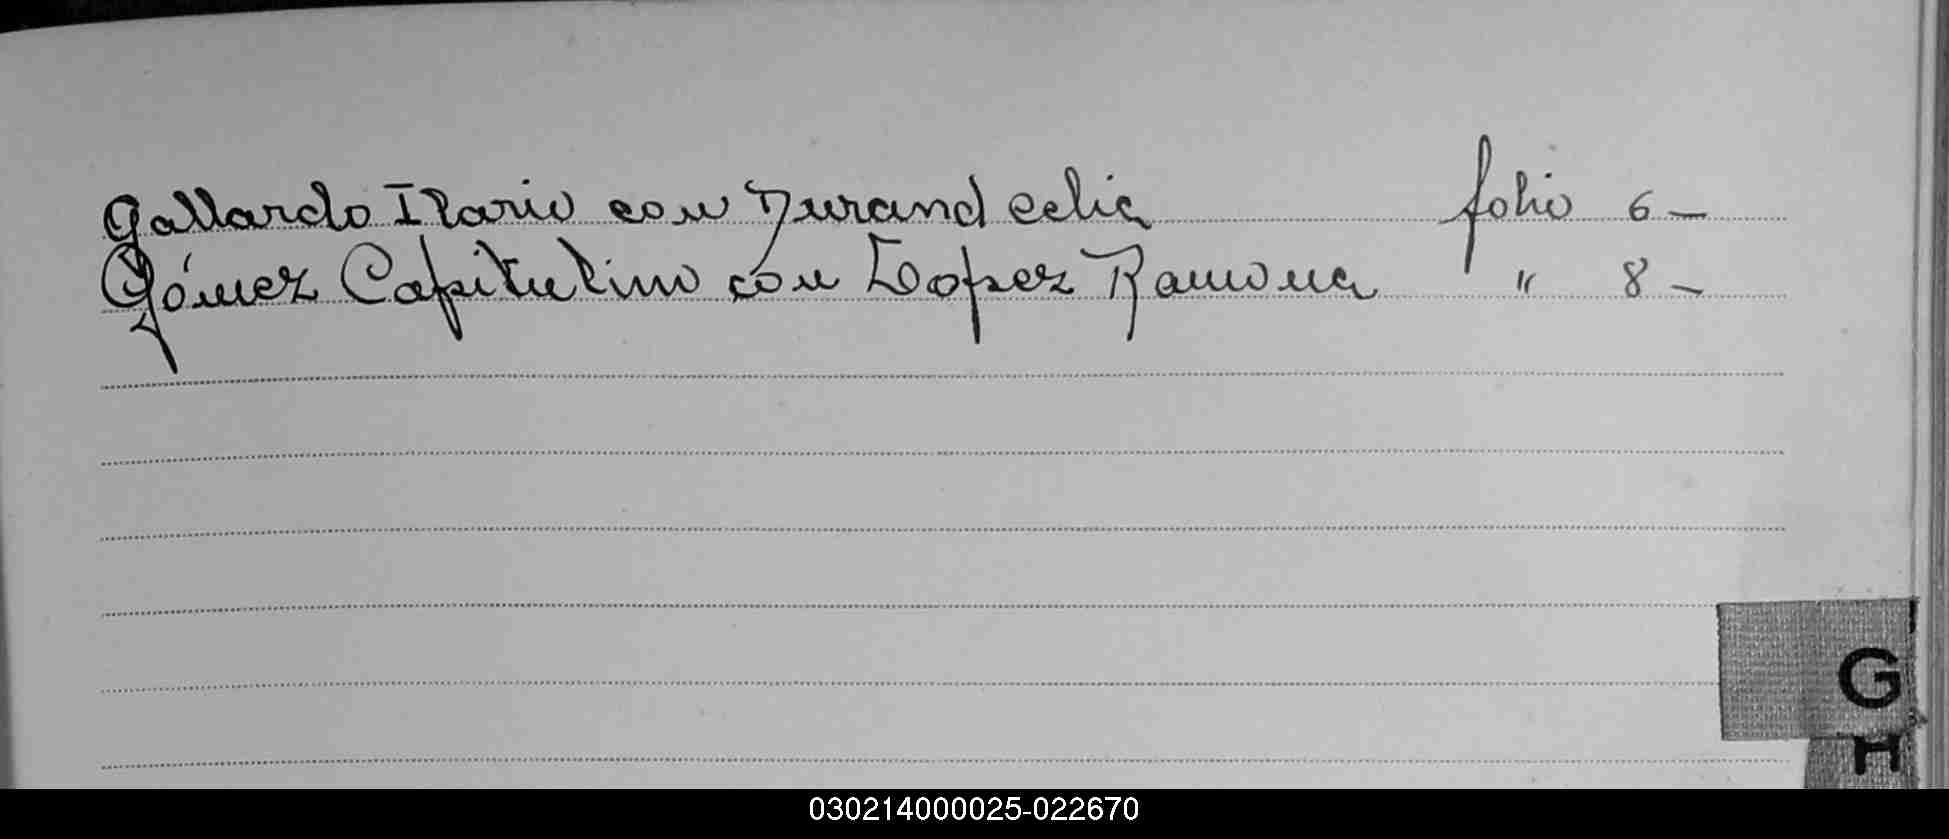 Gallardo Ilario con Durand Celia folio 6 -
Gómez Capitulino con Lopez Ramona " 8 -
G
H
030214000025-022670